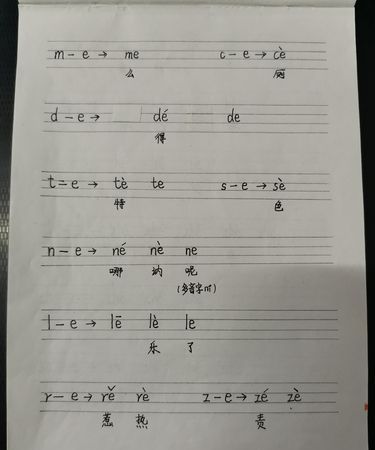 m - e → me c - e → cè
么 厕
d - e → dé de
得
t = e → tè te s - e → sè
特 色
n - e → né nè ne
哪 呐 呢
(多音字ní)
l - e → lē lè le
乐 了
r - e → rě rè z - e → zé zè
惹 热 责